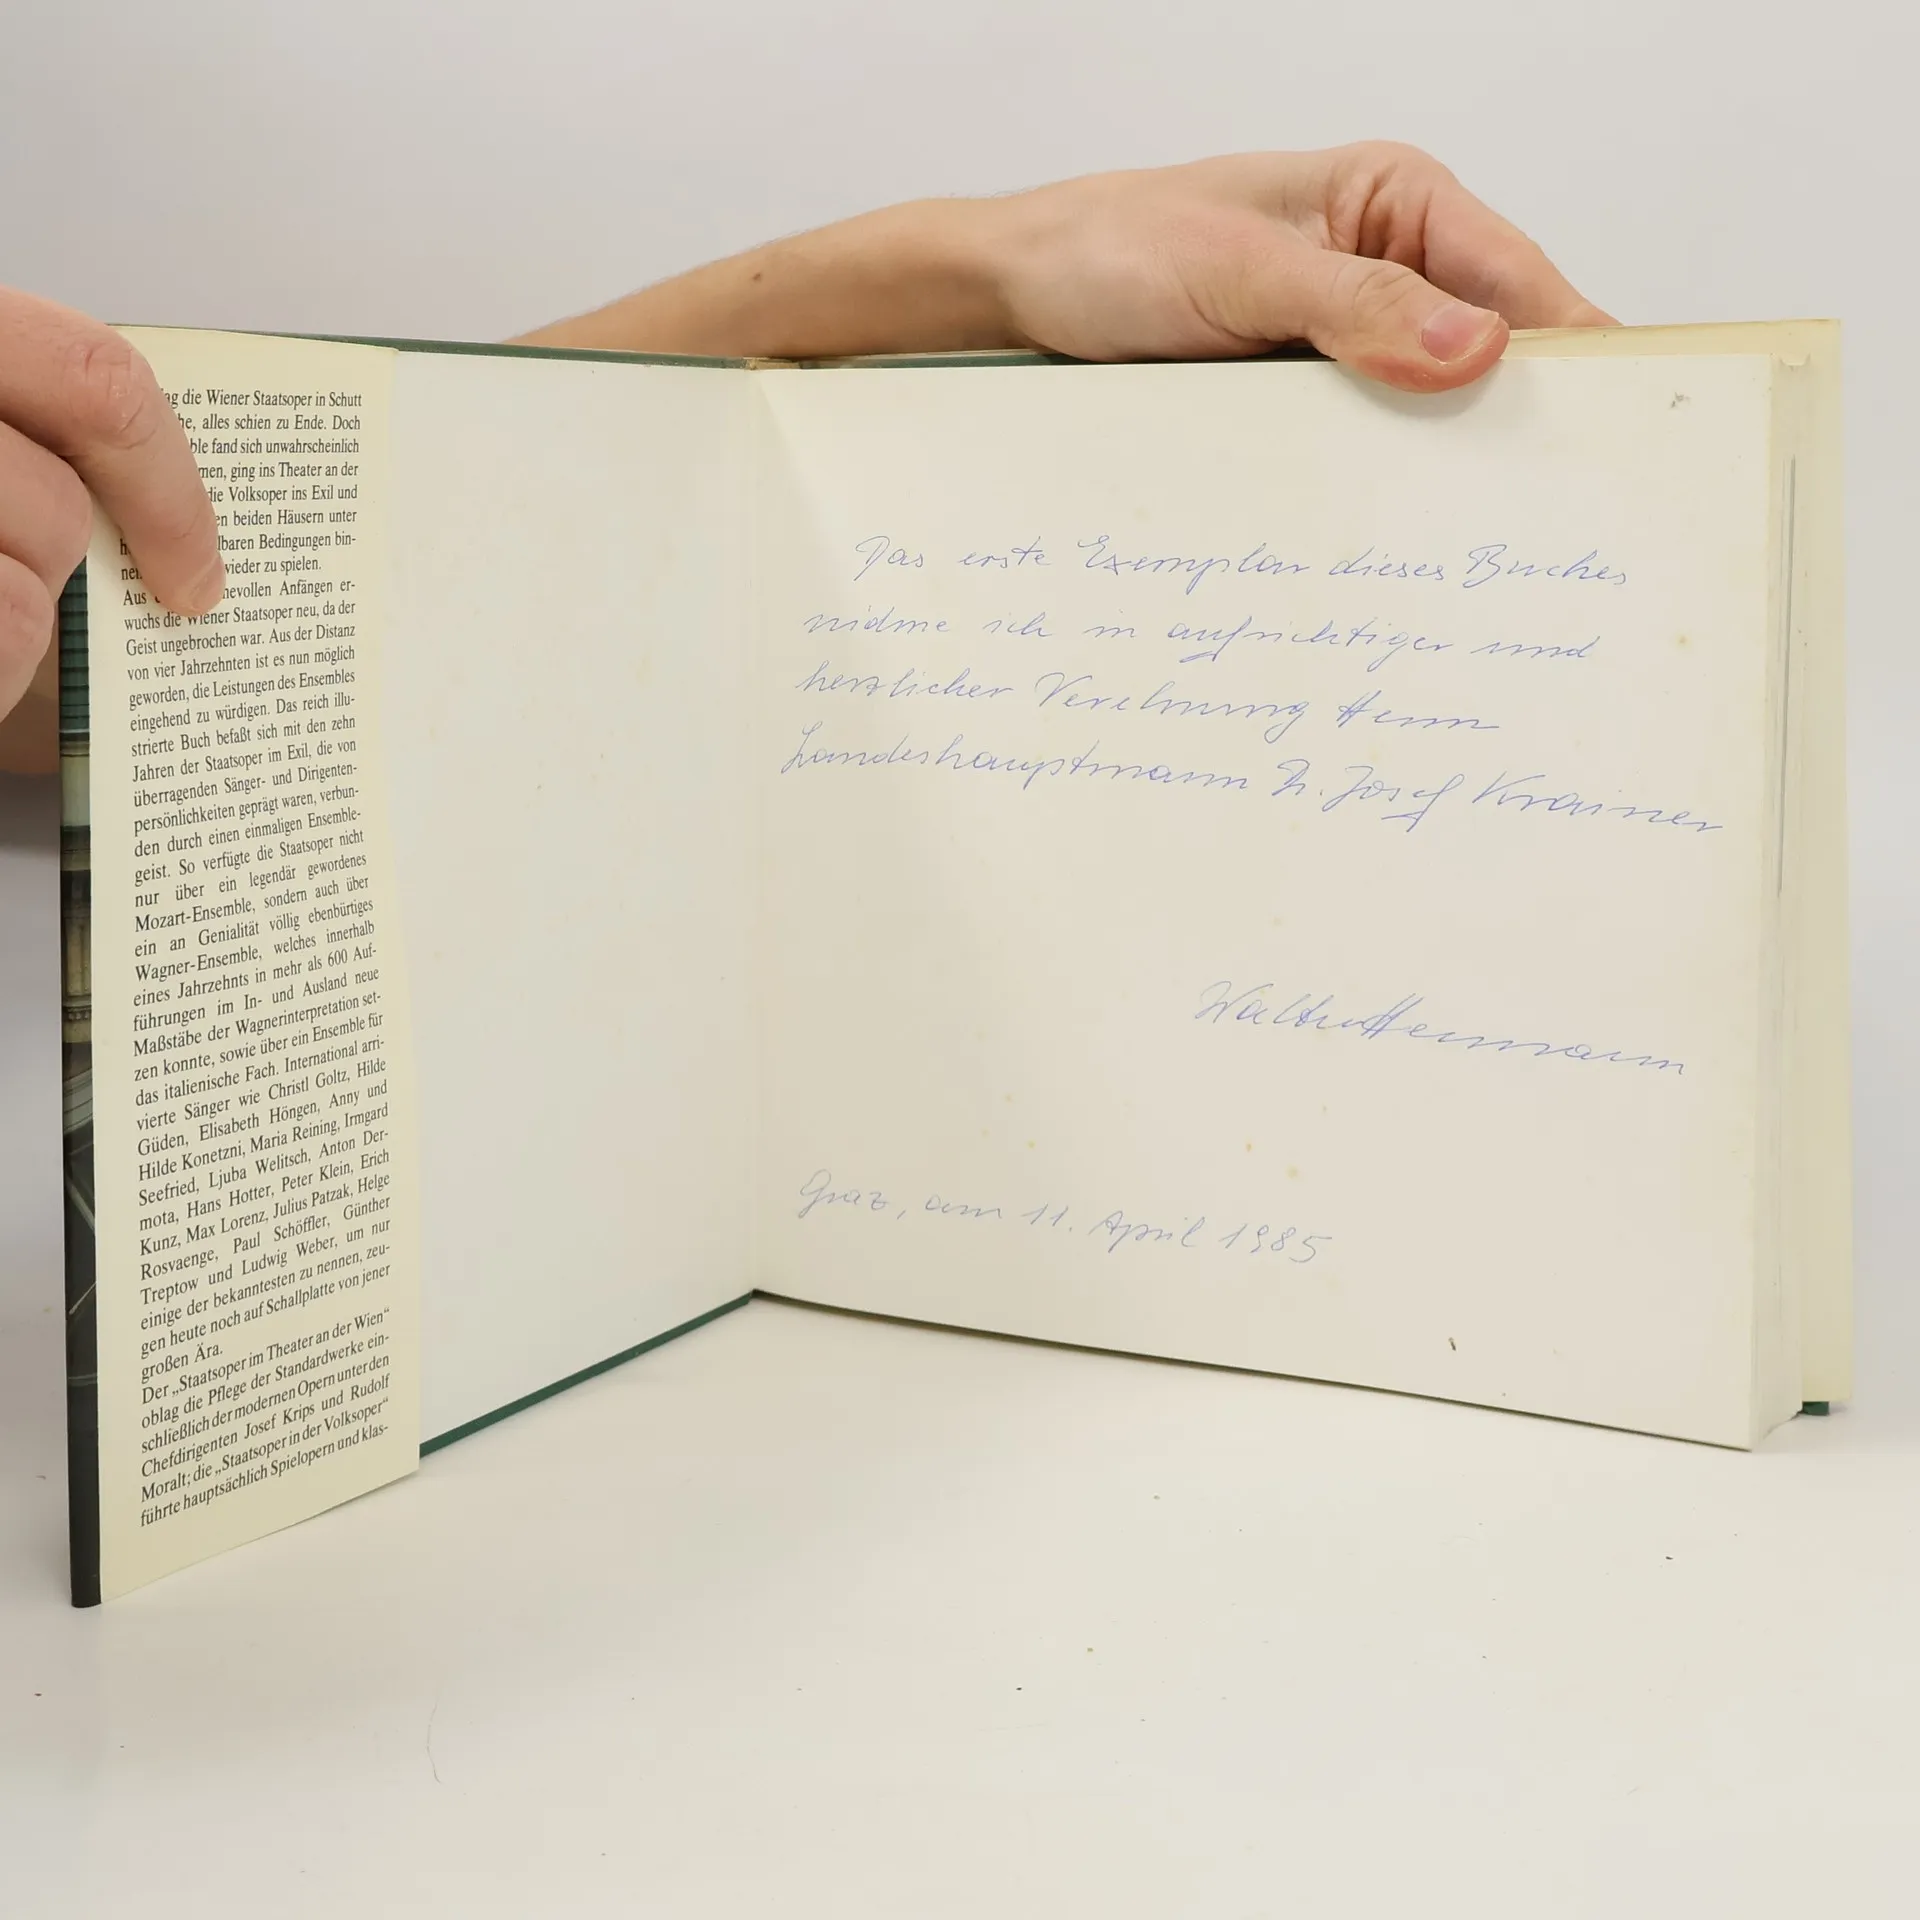 ag die Wiener Staatsoper in Schutt
he, alles schien zu Ende. Doch
ble fand sich unwahrscheinlich
men, ging ins Theater an der
die Volksoper ins Exil und
en beiden Häusern unter
lbaren Bedingungen bin-
wieder zu spielen.
Aus hevollen Anfängen er-
wuchs die Wiener Staatsoper neu, da der
Geist ungebrochen war. Aus der Distanz
von vier Jahrzehnten ist es nun möglich
geworden, die Leistungen des Ensembles
eingehend zu würdigen. Das reich illu-
strierte Buch befaßt sich mit den zehn
Jahren der Staatsoper im Exil, die von
überragenden Sänger- und Dirigenten-
persönlichkeiten geprägt waren, verbun-
den durch einen einmaligen Ensemble-
geist. So verfügte die Staatsoper nicht
nur über ein legendär gewordenes
Mozart-Ensemble, sondern auch über
ein an Genialität völlig ebenbürtiges
Wagner-Ensemble, welches innerhalb
eines Jahrzehnts in mehr als 600 Auf-
führungen im In- und Ausland neue
Maßstäbe der Wagnerinterpretation set-
zen konnte, sowie über ein Ensemble für
das italienische Fach. International arri-
vierte Sänger wie Christl Goltz, Hilde
Güden, Elisabeth Höngen, Anny und
Hilde Konetzni, Maria Reining, Irmgard
Seefried, Ljuba Welitsch, Anton Der-
mota, Hans Hotter, Peter Klein, Erich
Kunz, Max Lorenz, Julius Patzak, Helge
Rosvaenge, Paul Schöffler, Günther
Treptow und Ludwig Weber, um nur
einige der bekanntesten zu nennen, zeu-
gen heute noch auf Schallplatte von jener
großen Ära.
Der „Staatsoper im Theater an der Wien“
oblag die Pflege der Standardwerke ein-
schließlich der modernen Opern unter den
Chefdirigenten Josef Krips und Rudolf
Moralt; die „Staatsoper in der Volksoper“
führte hauptsächlich Spielopern und klas-
Das erste Exemplar dieses Buches
widme ich in aufrichtiger und
herzlicher Verehrung Herrn
Landeshauptmann Dr. Josef Krainer
Walter Herrmann
Graz, am 11. April 1985